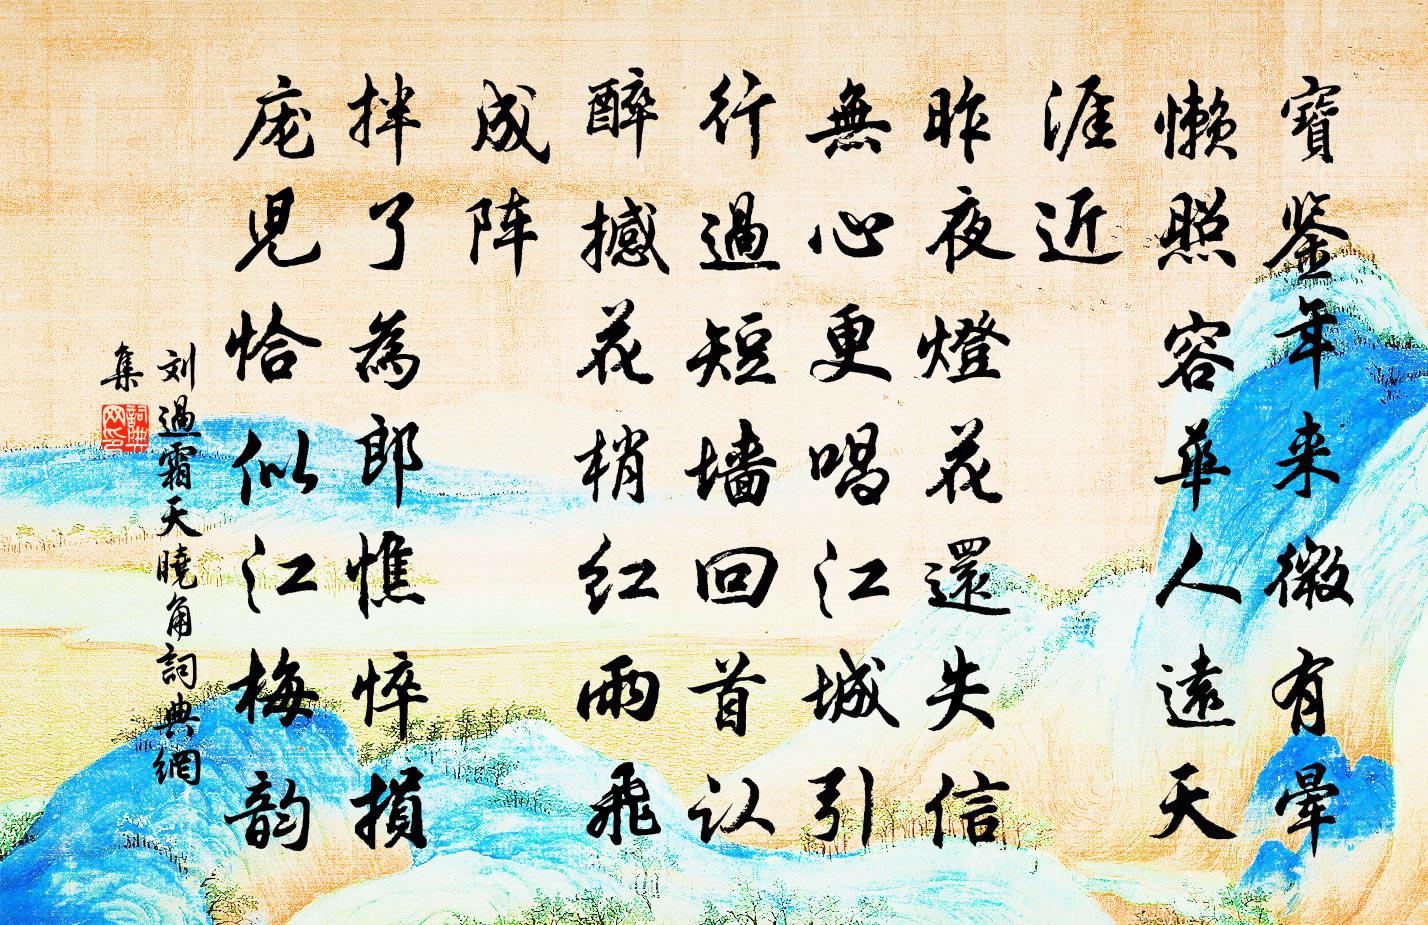 寶鉴年来微有暈
懒照容华人遠天
涯近
昨夜燈花還失信
無心更唱江城引
行過短墙回首认
醉撼花梢红雨飛
成阵
拌了為郎憔悴損
庞児恰似江梅韵
刘過霜天曉角詞典網
集